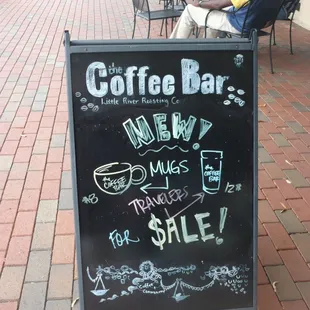 the
Coffee Bar
Little River Roasting Co.
NEW!
MUGS
the
COFFEE
BAR
the
COFFEE
BAR
$8
12$
TRAVELERS
FOR
$ALE!
Coffee